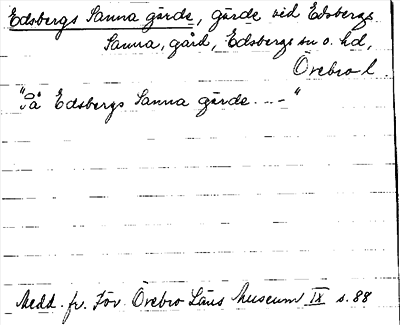 Edsbergs Sanna gärde, gärde vid Edsbergs
Sanna, gård, Edsbergs sn o. hd,
Örebro l
"På Edsbergs Sanna gärde. . . -"
Medd. fr. För. Örebro Läns Museum IX s. 88